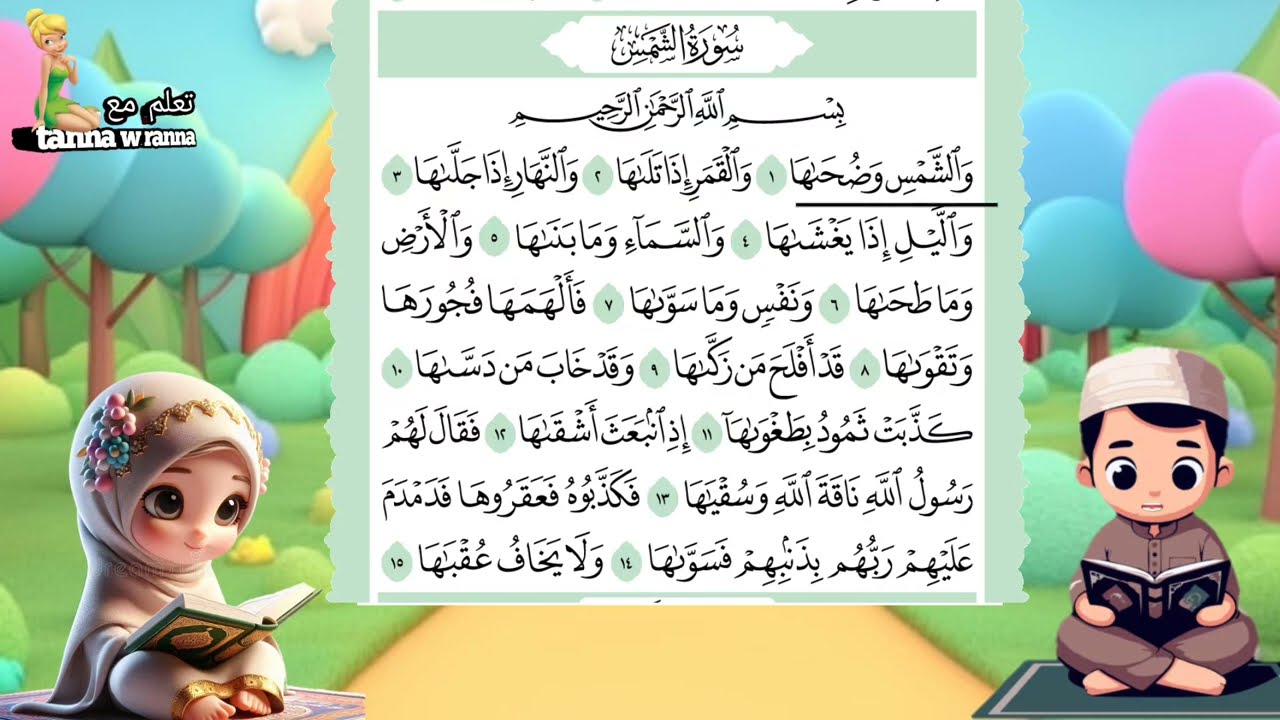 تعلم مع
tanna w ranna
سُورَةُ الشَّمْسِ
بِسْمِ ٱللَّهِ ٱلرَّحْمَٰنِ ٱلرَّحِيمِ
وَٱلشَّمْسِ وَضُحَىٰهَا ١ وَٱلْقَمَرِ إِذَا تَلَىٰهَا ٢ وَٱلنَّهَارِ إِذَا جَلَّىٰهَا ٣
وَٱلَّيْلِ إِذَا يَغْشَىٰهَا ٤ وَٱلسَّمَآءِ وَمَا بَنَىٰهَا ٥ وَٱلْأَرْضِ
وَمَا طَحَىٰهَا ٦ وَنَفْسٍ وَمَا سَوَّىٰهَا ٧ فَأَلْهَمَهَا فُجُورَهَا
وَتَقْوَىٰهَا ٨ قَدْ أَفْلَحَ مَن زَكَّىٰهَا ٩ وَقَدْ خَابَ مَن دَسَّىٰهَا ١٠
كَذَّبَتْ ثَمُودُ بِطَغْوَىٰهَآ ١١ إِذِ ٱنۢبَعَثَ أَشْقَىٰهَا ١٢ فَقَالَ لَهُمْ
رَسُولُ ٱللَّهِ نَاقَةَ ٱللَّهِ وَسُقْيَٰهَا ١٣ فَكَذَّبُوهُ فَعَقَرُوهَا فَدَمْدَمَ
عَلَيْهِمْ رَبُّهُم بِذَنۢبِهِمْ فَسَوَّىٰهَا ١٤ وَلَا يَخَافُ عُقْبَٰهَا ١٥